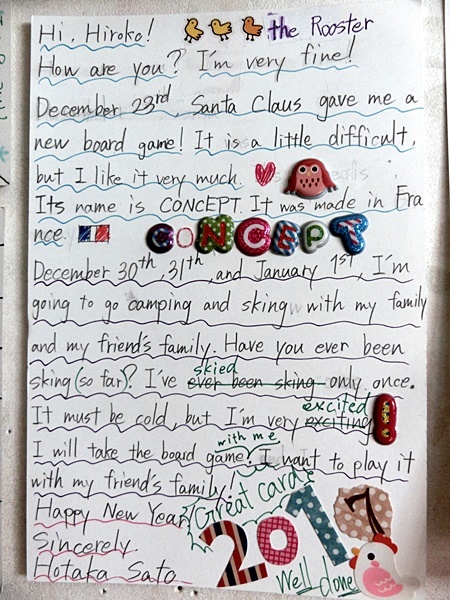 Hi, Hiroko! the Rooster
How are you? I'm very fine!
December 23rd, Santa Claus gave me a
new board game! It is a little difficult,
but I like it very much.
Its name is CONCEPT. It was made in Fra
nce. CONCEPT
December 30th, 31th, and January 1st, I'm
going to go camping and sking with my family
and my friend's family. Have you ever been
sking (so far)? I've ever been sking skied only once.
It must be cold, but I'm very exciting excited
I will take the board game with me! I want to play it
with my friend's family!
Great card!
Happy New Year 2017
Sincerely.
Well done
Hotaka Sato